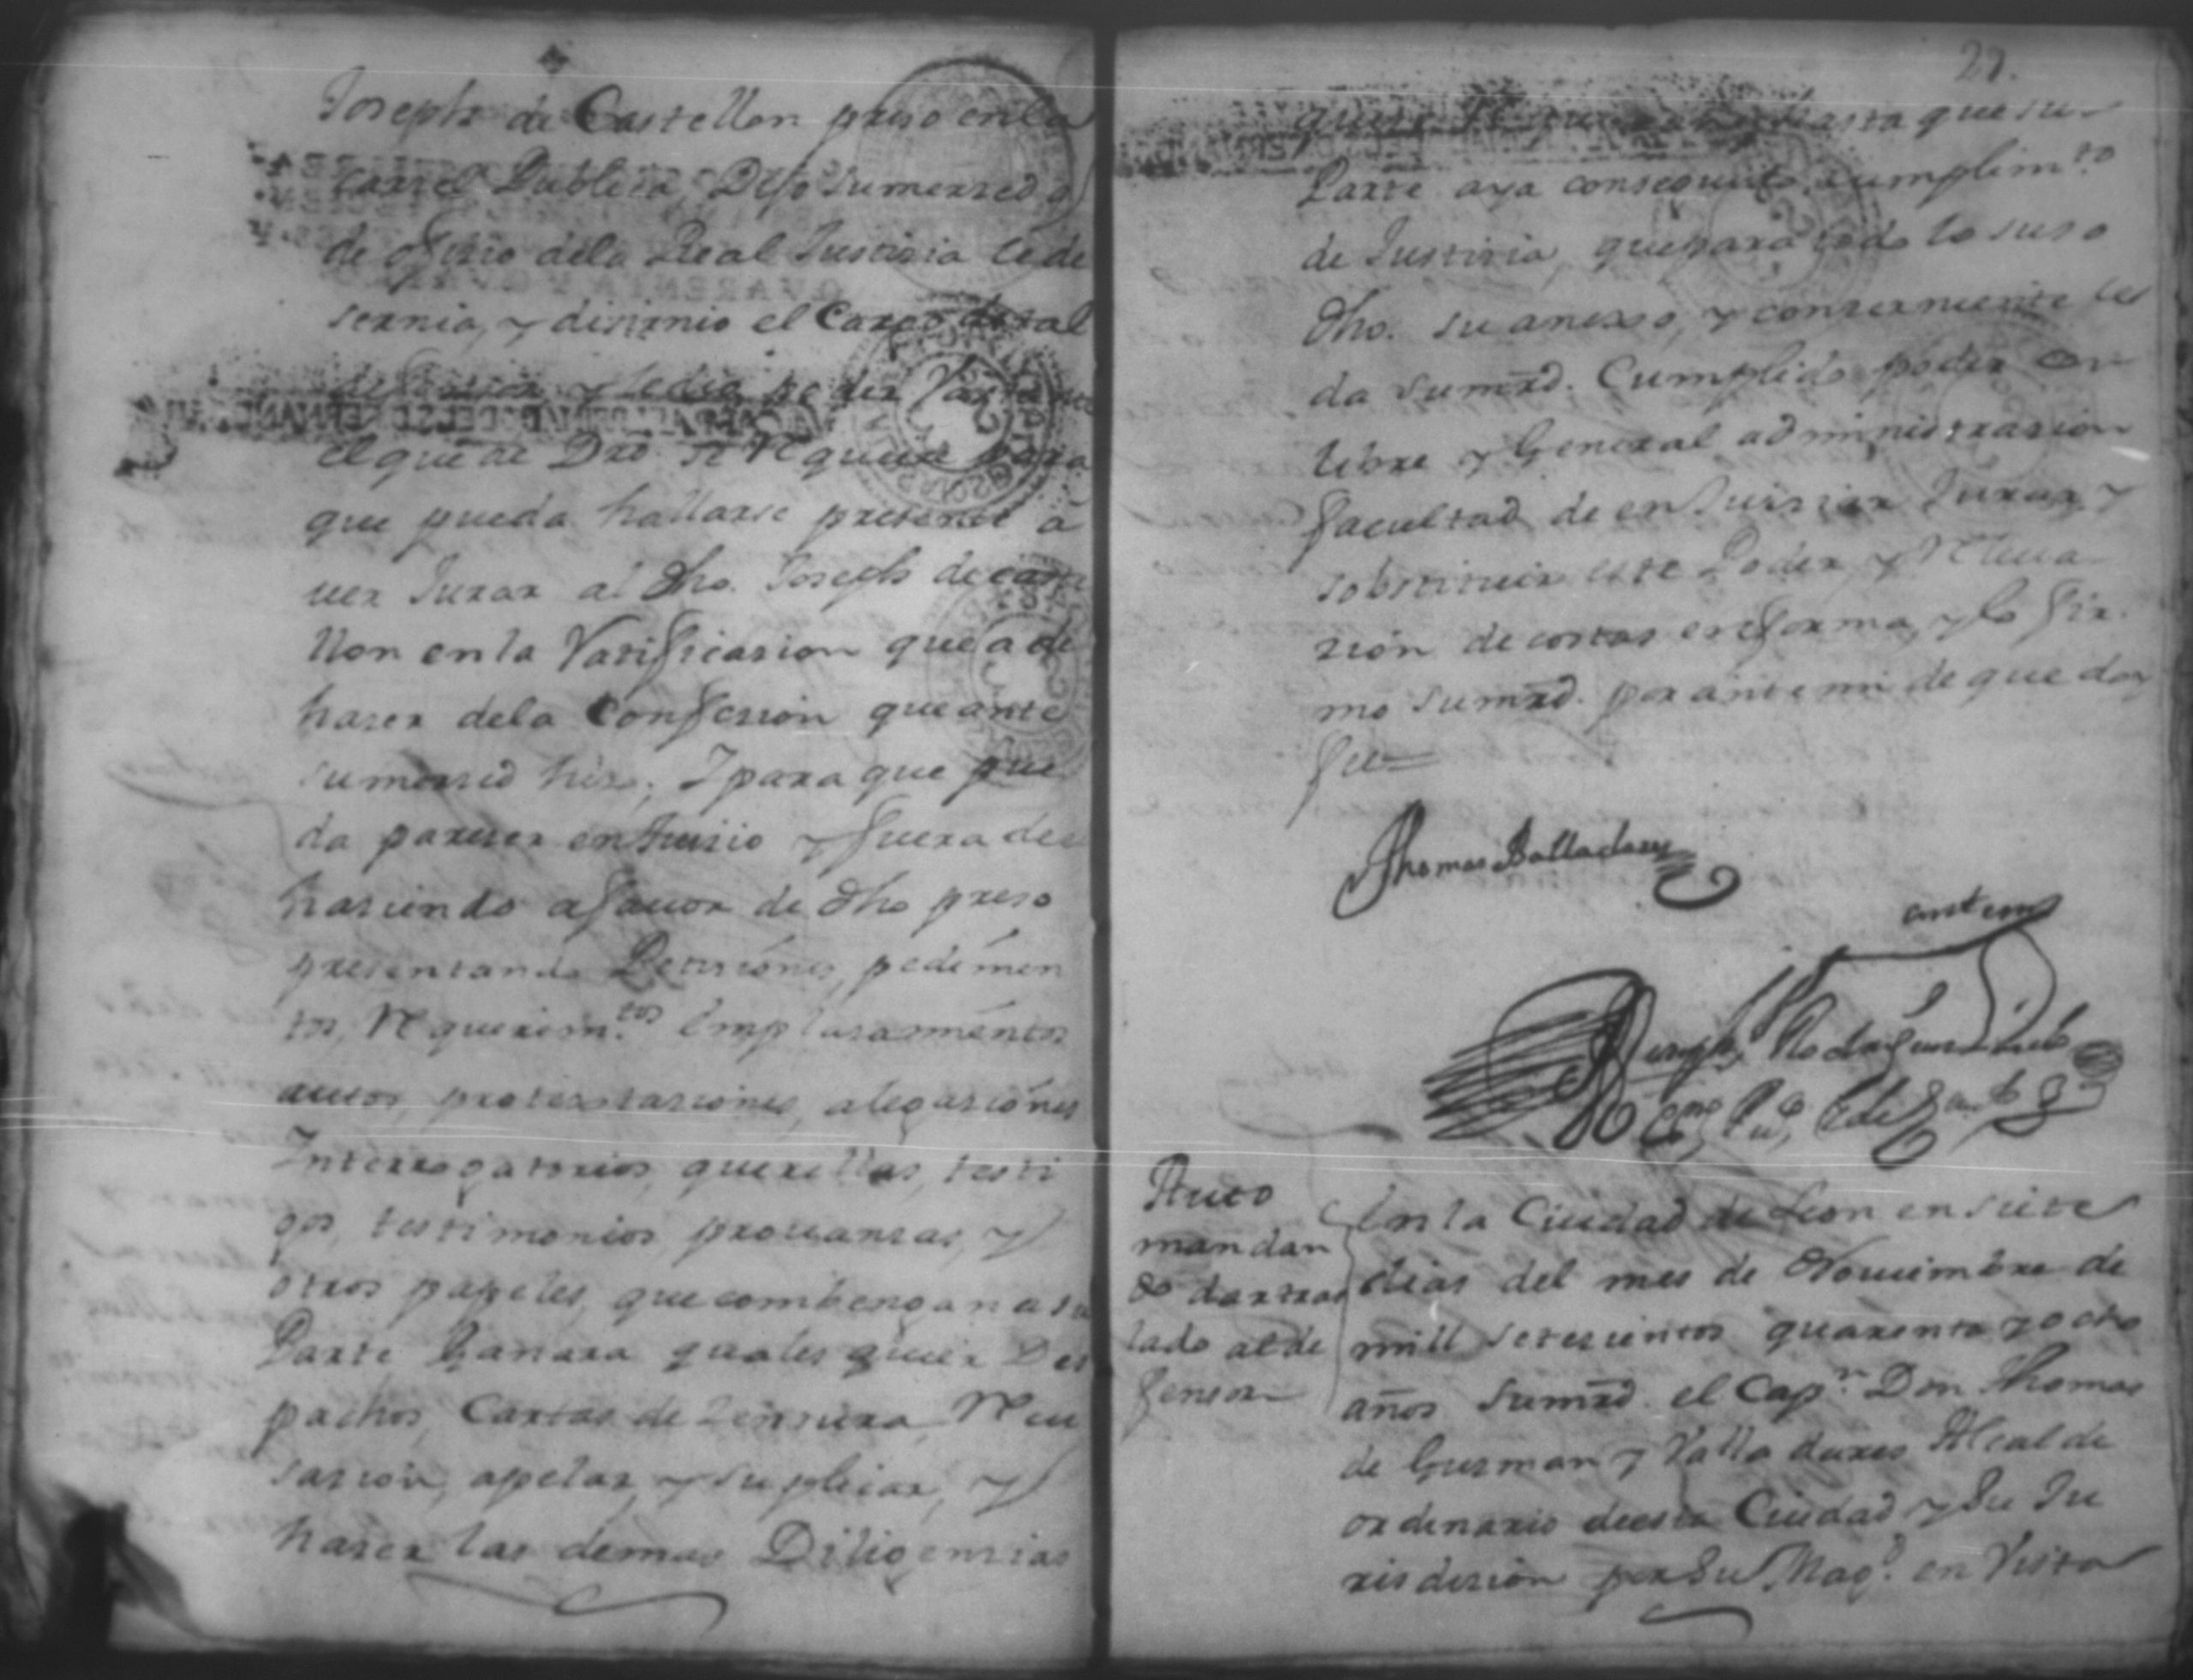 Joseph de Castellon preso en la
carsel Publica, Dijo sumersed q
de ofisio dela Real Justisia le de
sernia, y disirnio el Cargo de tal
defensor y ledio poder
el que de Dro se Requiere para
que pueda hallarse presente a
uer Jurar al dho. Joseph de caste
llon en la Ratificasion que a de
haser dela Confesion que ante
sumersed hiso; I para que pue
da pareser en Juisio y fuera de
hasiendo a fauor de dho preso
presentando Petisiones, pedimen
tos, Requerim.tos Emplasamientos
autos, protestasiones, alegasiones
Interrogatorios, querellas, testi
gos, testimonios, prouansas, y
otros papeles, que combengan a su
Parte Ganara quales quier Des
pachos, Cartas de Sensura, Recu
sasion, apelar, y suplicar, y
haser las demas Diligensias
27.
que se hasta que su
Parte aya conseguido cumplim.to
de Justisia, que para todo lo suso
dho. su anexo, y conserniente les
da sumrd. Cumplido poder con
libre y General administrasion
facultad de en Juisiar Jurar y
sobstituir este Poder y Releua
sion de costas en forma, y lo fir
mo sumrd. por ante mi de que doy
fee
Thomas Balladares
ante mi
Auto
mandan
do dar tras
lado al de
fensor
En la Ciudad de Leon en siete
dias del mes de Nouiembre de
mill setesientos quarenta y ocho
años sumrd. el Cap.n Don Thomas
de Gusman y Valladares Alcalde
ordinario deesta Ciudad y Su Ju
risdision por Su Mag.d en Vista